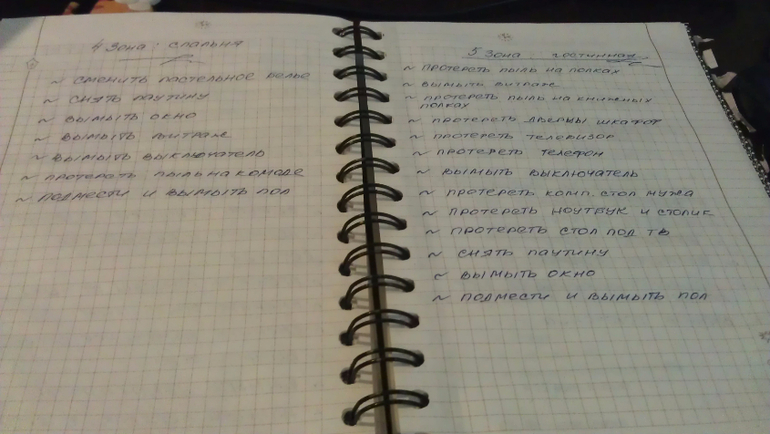 4 зона: спальня
~ сменить пастельное белье
~ снять паутину
~ вымыть окно
~ вымыть витраж
~ вымыть выключатель
~ протереть пыль на комоде
~ подмести и вымыть пол
5 зона гостинная
~ протереть пыль на полках
~ вымыть витраж
~ протереть пыль на книжных
полках
~ протереть дверцы шкафов
~ протереть телевизор
~ протереть телефон
~ вымыть выключатель
~ протереть комп. стол мужа
~ протереть ноутбук и столик
~ протереть стол под тв
~ снять паутину
~ вымыть окно
~ подмести и вымыть пол